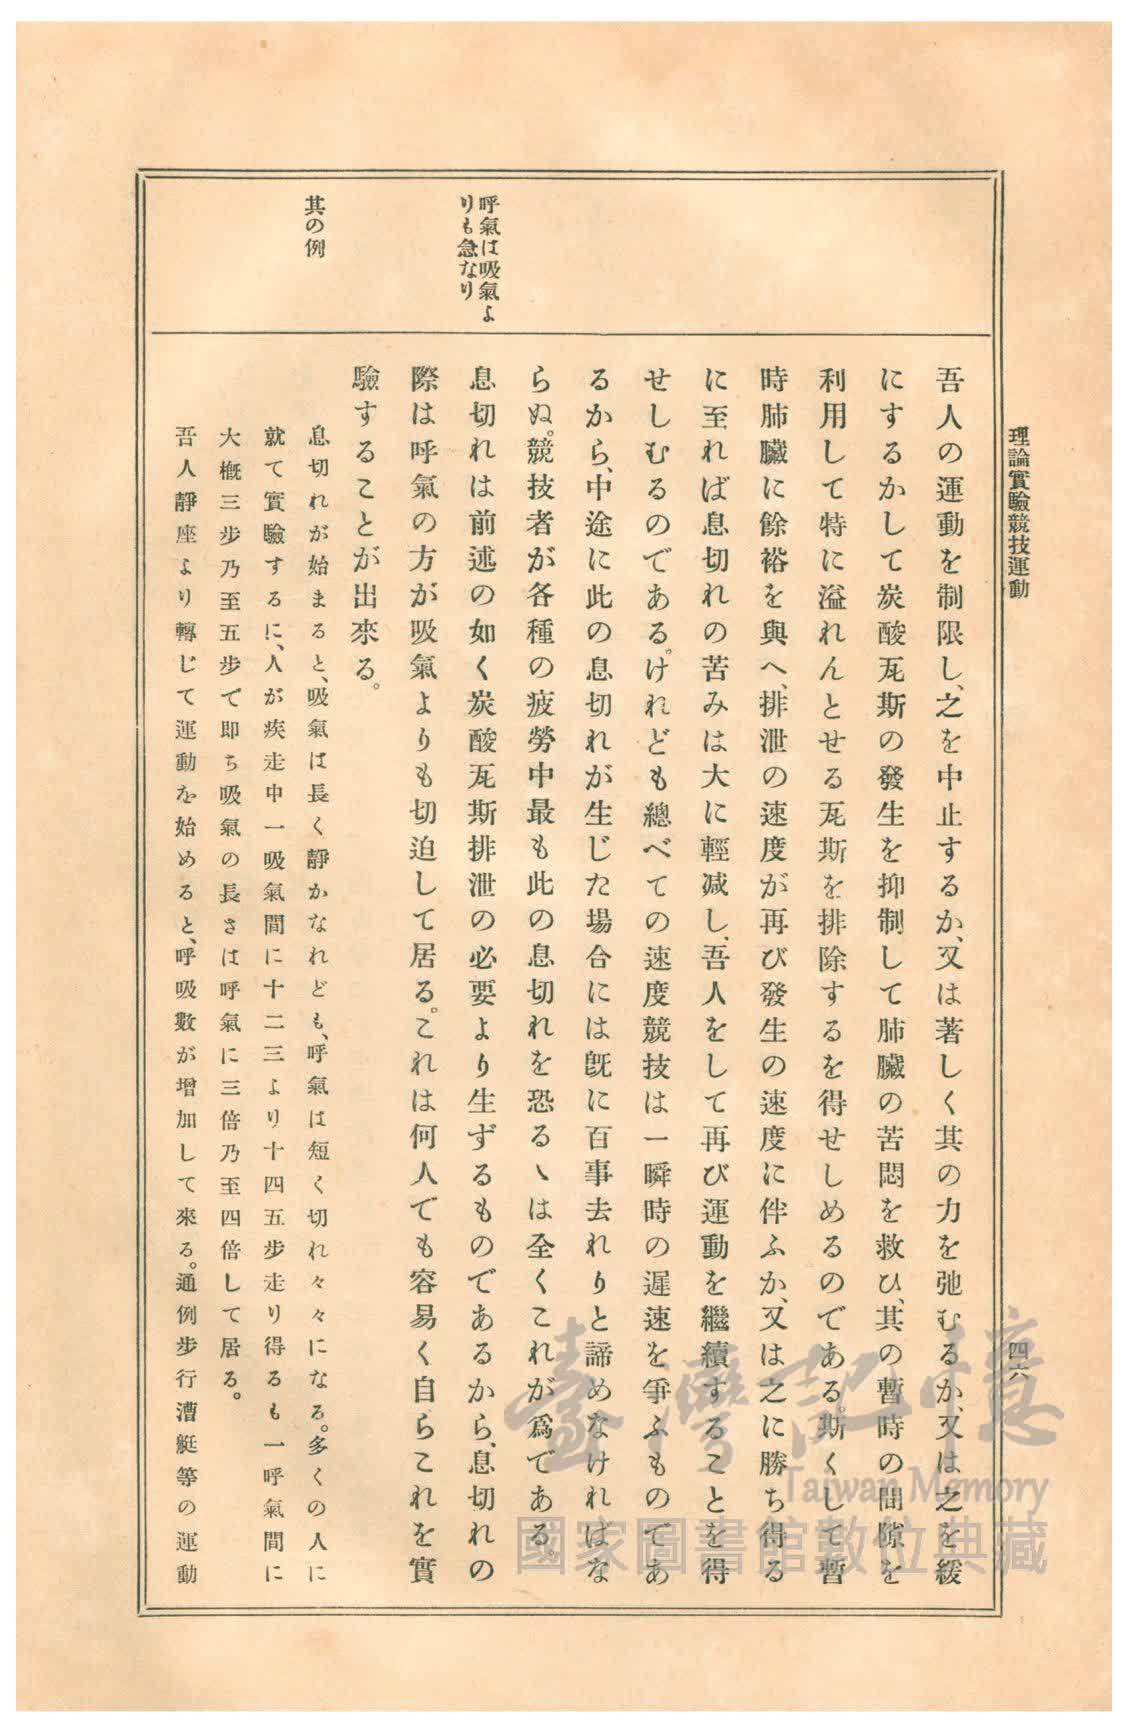 理論實驗競技運動
四六
呼氣は吸氣よ
りも急なり
其の例
吾人の運動を制限し、之を中止するか、又は著しく其の力を弛むるか、又は之を緩
にするかして炭酸瓦斯の發生を抑制して肺臟の苦悶を救ひ、其の暫時の間隙を
利用して特に溢れんとせる瓦斯を排除するを得せしめるのである。斯くして暫
時肺臟に餘裕を與へ、排泄の速度が再び發生の速度に伴ふか、又は之に勝ち得る
に至れば息切れの苦みは大に輕減し、吾人をして再び運動を繼續することを得
せしむるのである。けれども總べての速度競技は一瞬時の遲速を爭ふものであ
るから、中途に此の息切れが生じた場合には既に百事去れりと諦めなければな
らぬ。競技者が各種の疲勞中最も此の息切れを恐るヽは全くこれが爲である。
息切れは前述の如く炭酸瓦斯排泄の必要より生ずるものであるから、息切れの
際は呼氣の方が吸氣よりも切迫して居る。これは何人でも容易く自らこれを實
驗することが出來る。
息切れが始まると、吸氣は長く靜かなれども、呼氣は短く切れ々々になる。多くの人に
就て實驗するに、人が疾走中一吸氣間に十二三より十四五步走り得るも一呼氣間に
大槪三步乃至五步で即ち吸氣の長さは呼氣に三倍乃至四倍して居る。
吾人靜座より轉じて運動を始めると、呼吸數が增加して來る。通例步行漕艇等の運動
臺灣記憶
Taiwan Memory
國家圖書館數位典藏